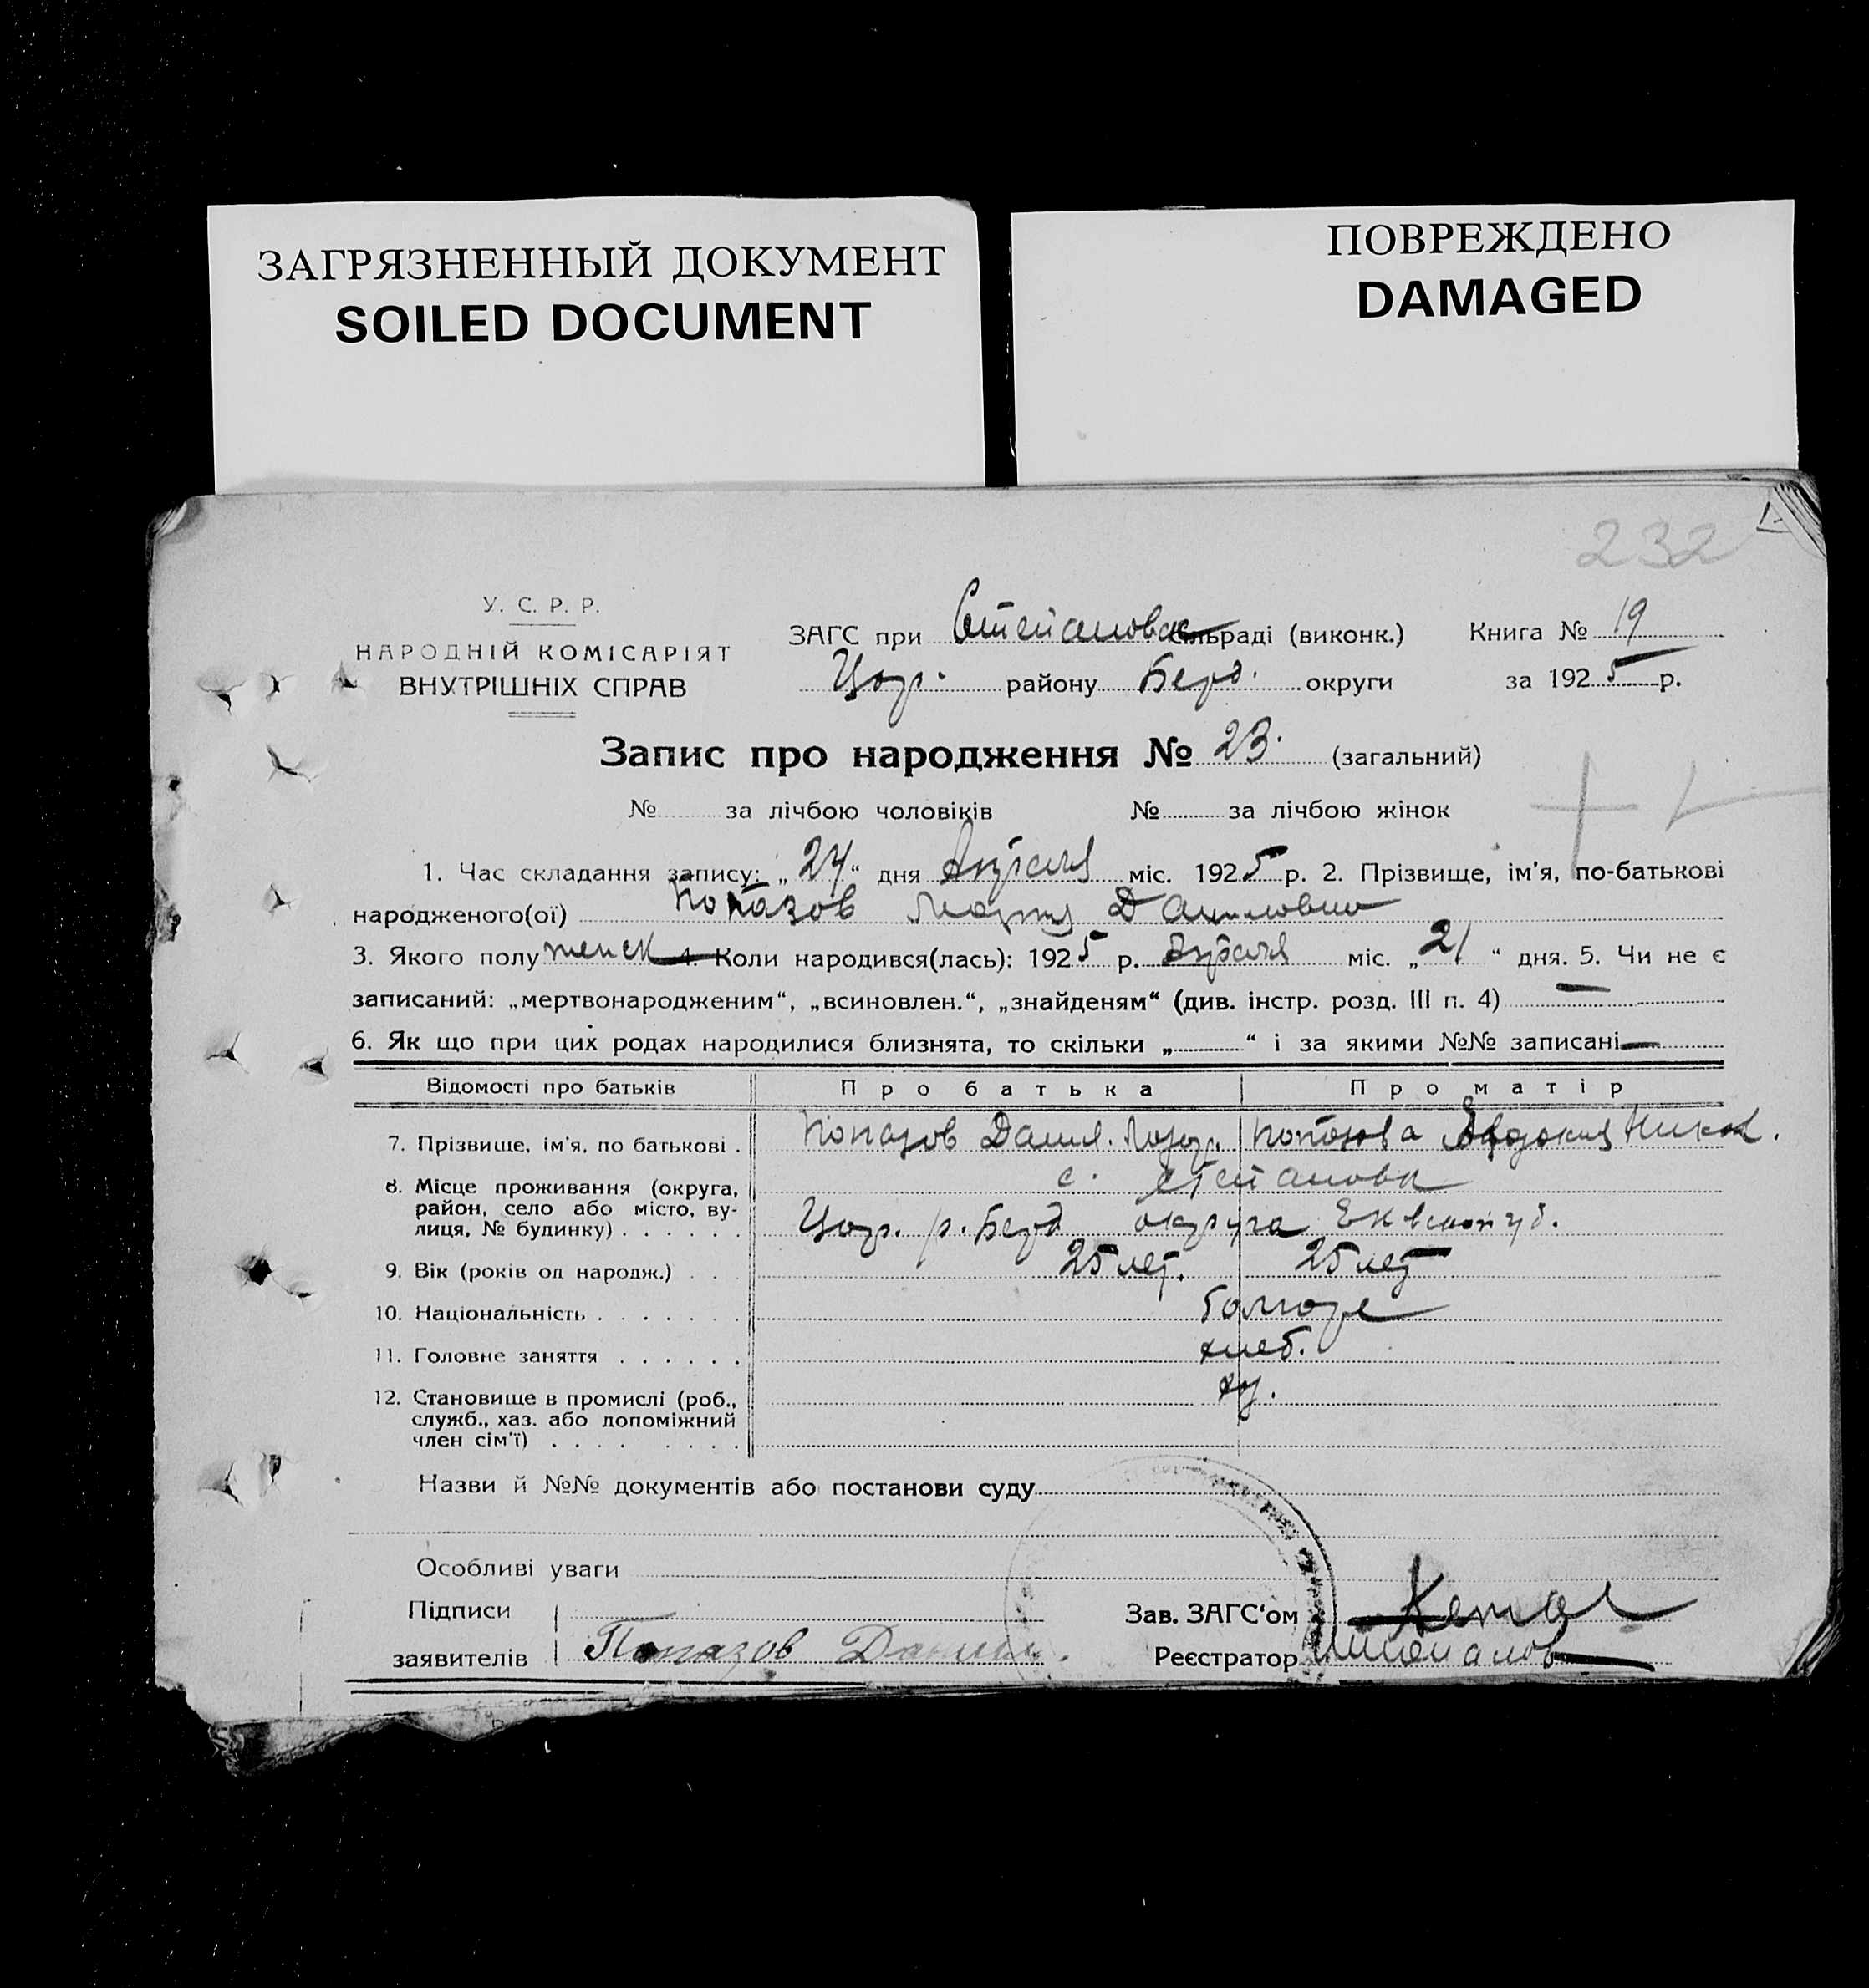 ЗАГРЯЗНЕННЫЙ ДОКУМЕНТ
SOILED DOCUMENT
ПОВРЕЖДЕНО
DAMAGED
232
У. С. Р. Р.
НАРОДНІЙ КОМІСАРІЯТ
ВНУТРІШНІХ СПРАВ
ЗАГС при Степановск сільраді (виконк.) Книга № 19
Цар. району Берд. округи за 1925 р.
Запис про народження № 23. (загальний)
№ за лічбою чоловіків № за лічбою жінок
1. Час складання запису: „24“ дня Апреля міс. 1925 р. 2. Прізвище, ім'я, по-батькові
народженого(ої) Попазов Мария Даниловна
3. Якого полу женск 4. Коли народився(лась): 1925 р. Апреля міс. „21“ дня. 5. Чи не є
записаний: „мертвонародженим“, „всиновлен.“, „знайденям“ (див. інстр. розд. III п. 4) —
6. Як що при цих родах народилися близнята, то скільки „ “ і за якими №№ записані —
Відомості про батьків Про батька Про матір
7. Прізвище, ім'я, по батькові . Попазов Данил. Лазар. Попазова Евдокия Никол.
8. Місце проживання (округа, район, село або місто, вулиця, № будинку) с. Степановк
Цар. р. Берд округа Екатер губ.
9. Вік (років од народж.) 25 лет. 25 лет
10. Національність Болгаре
11. Головне заняття хлеб.
12. Становище в промислі (роб., служб., хаз. або допоміжний член сім'ї) хоз.
Назви й №№ документів або постанови суду
Особливі уваги
Підписи
заявителів Попазов Данил.
Зав. ЗАГС'ом
Реєстратор